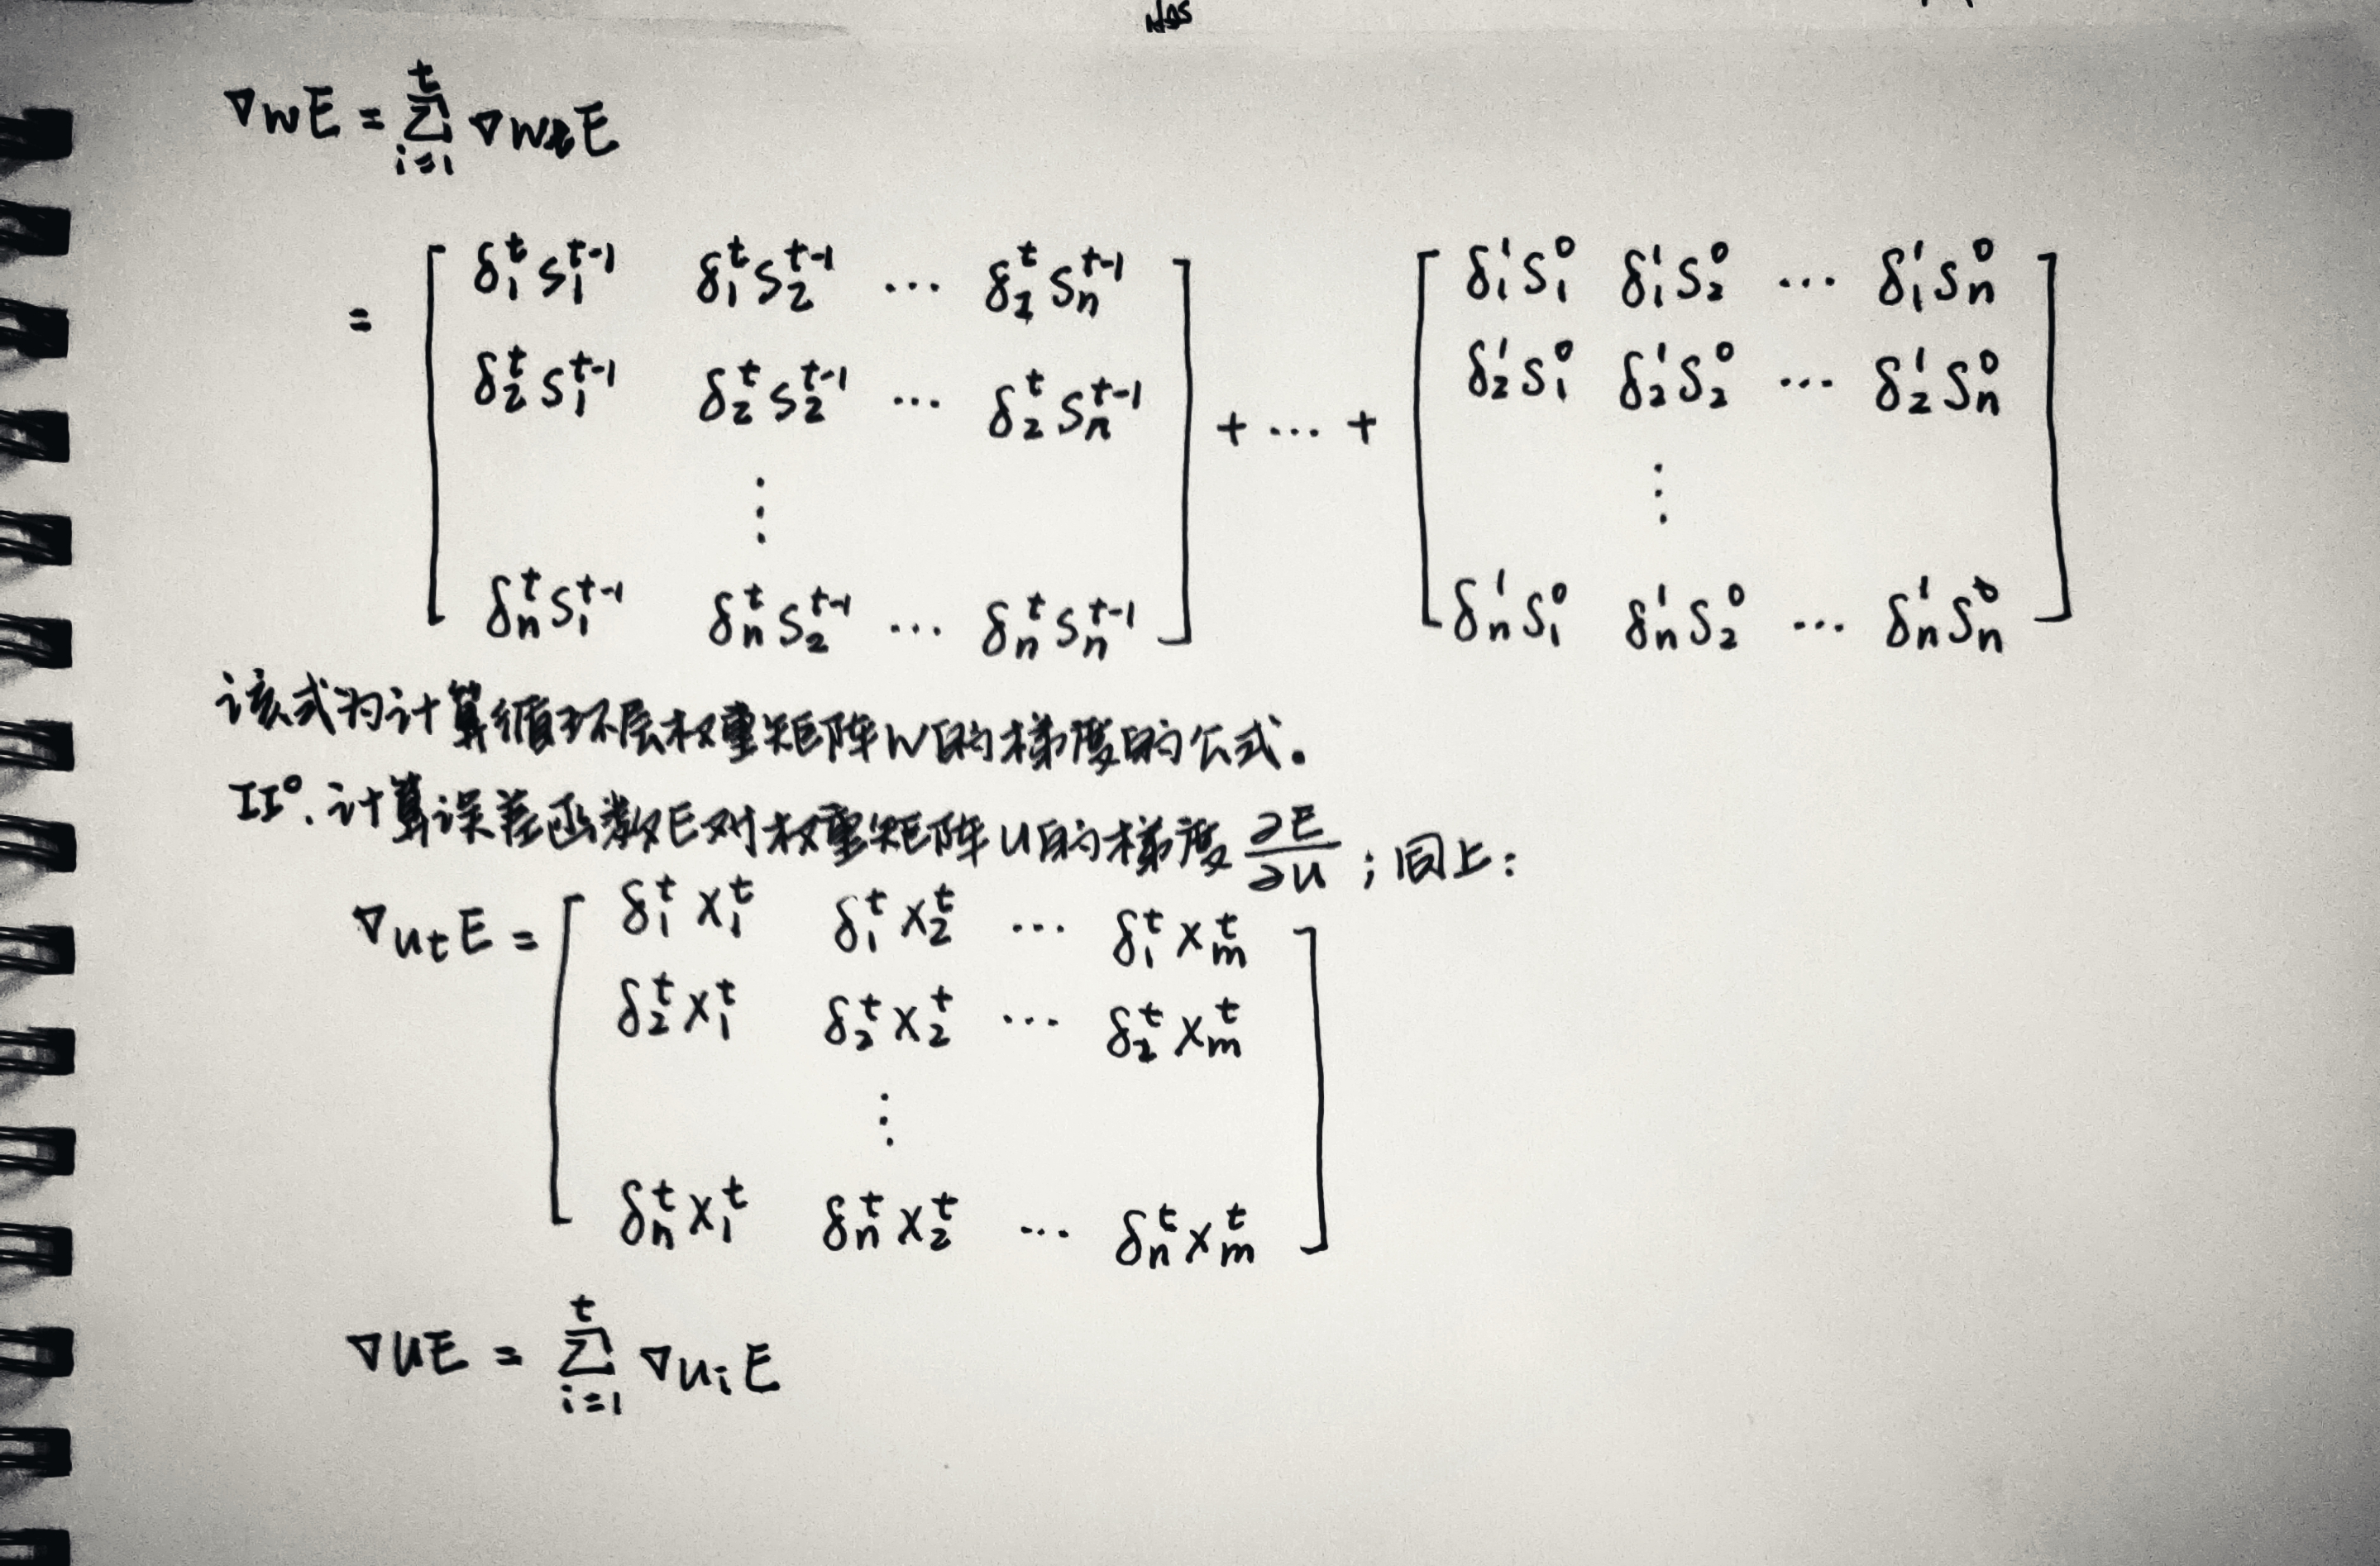 ∇wE = Σ_{i=1}^{t} ∇w E
= [ δ₁ᵗs₁ᵗ⁻¹ δ₁ᵗs₂ᵗ⁻¹ ... δ₁ᵗsₙᵗ⁻¹ ; δ₂ᵗs₁ᵗ⁻¹ δ₂ᵗs₂ᵗ⁻¹ ... δ₂ᵗsₙᵗ⁻¹ ; ⋮ ; δₙᵗs₁ᵗ⁻¹ δₙᵗs₂ᵗ⁻¹ ... δₙᵗsₙᵗ⁻¹ ] + ... + [ δ₁¹s₁⁰ δ₁¹s₂⁰ ... δ₁¹sₙ⁰ ; δ₂¹s₁⁰ δ₂¹s₂⁰ ... δ₂¹sₙ⁰ ; ⋮ ; δₙ¹s₁⁰ δₙ¹s₂⁰ ... δₙ¹sₙ⁰ ]
该式为计算循环层权重矩阵W的梯度的公式。
II°.计算误差函数E对权重矩阵U的梯度 ∂E/∂U ; 同上:
∇uₜE = [ δ₁ᵗx₁ᵗ δ₁ᵗx₂ᵗ ... δ₁ᵗxₘᵗ ; δ₂ᵗx₁ᵗ δ₂ᵗx₂ᵗ ... δ₂ᵗxₘᵗ ; ⋮ ; δₙᵗx₁ᵗ δₙᵗx₂ᵗ ... δₙᵗxₘᵗ ]
∇uE = Σ_{i=1}^{t} ∇uᵢE